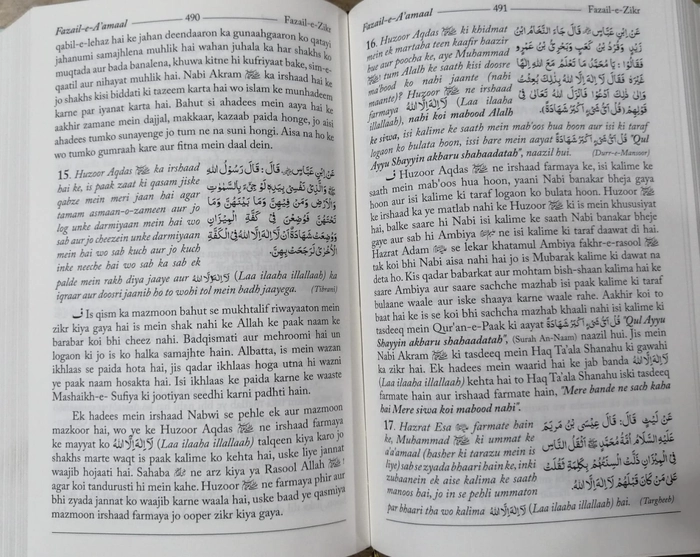 Fazail-e-A'amaal 490 Fazail-e-Zikr
qabil-e-lehaz hai ke jahan deendaaron ka gunaahgaaron ko qatayi
jahanumi samajhlena muhlik hai wahan juhala ka har shakhs ko
muqtada aur bada banalena, khuwa kitne hi kufriyaat bake, sim-e-
qaatil aur nihayat muhlik hai. Nabi Akram ﷺ ka irshaad hai ke
jo shakhs kisi biddati ka tazeem karta hai wo islam ke munhadeem
karne par iyanat karta hai. Bahut si ahadees mein aaya hai ke
aakhir zamane mein dajjal, makkaar, kazaab paida honge, jo aisi
ahadees tumko sunayenge jo tum ne na suni hongi. Aisa na ho ke
wo tumko gumraah kare aur fitna mein daal dein.
15. Huzoor Aqdas ﷺ ka irshaad
hai ke, is paak zaat ki qasam jiske
qabze mein meri jaan hai agar
tamam asmaan-o-zameen aur jo
log unke darmiyaan mein hai wo
sab aur jo cheezein unke darmiyaan
mein hai wo sab kuch aur jo kuch
inke neeche hai wo sab ka sab ek
عَنِ ابْنِ عَبَّاسٍ ؓ، قَالَ: قَالَ رَسُولُ اللهِ
ﷺ وَالَّذِيْ نَفْسِيْ بِيَدِهِ لَوْ جِيْءَ بِالسَّمٰوَاتِ
وَالْاَرْضِ وَمَنْ فِيْهِنَّ وَمَا بَيْنَهُنَّ وَمَا
تَحْتَهُنَّ فَوُضِعْنَ فِيْ كِفَّةِ الْمِيْزَانِ
وَوُضِعَتْ شَهَادَةُ اَنْ لَّا اِلٰهَ اِلَّا اللهُ فِي الْكِفَّةِ
الْاُخْرٰى لَرَجَحَتْ بِهِنَّ.
palde mein rakh diya jaaye aur لَا اِلٰهَ اِلَّا اللهُ (Laa ilaaha illallaah) ka
iqraar aur doosri jaanib ho to wohi tol mein badh jaayega. (Tibrani)
ف Is qism ka mazmoon bahut se mukhtalif riwayaaton mein
zikr kiya gaya hai is mein shak nahi ke Allah ke paak naam ke
barabar koi bhi cheez nahi. Badqismati aur mehroomi hai un
logaon ki jo is ko halka samajhte hain. Albatta, is mein wazan
ikhlaas se paida hota hai, jis qadar ikhlaas hoga utna hi wazni
ye paak naam hosakta hai. Isi ikhlaas ke paida karne ke waaste
Mashaikh-e- Sufiya ki jootiyan seedhi karni padhti hain.
Ek hadees mein irshaad Nabwi se pehle ek aur mazmoon
mazkoor hai, wo ye ke Huzoor Aqdas ﷺ ne irshaad farmaya
ke mayyat ko لَا اِلٰهَ اِلَّا اللهُ (Laa ilaaha illallaah) talqeen kiya karo jo
shakhs marte waqt is paak kalime ko kehta hai, uske liye jannat
waajib hojaati hai. Sahaba ؓ ne arz kiya ya Rasool Allah ﷺ !
agar koi tandurusti hi mein kahe. Huzoor ﷺ ne farmaya phir aur
bhi zyada jannat ko waajib karne waala hai, uske baad ye qasmiya
mazmoon irshaad farmaya jo ooper zikr kiya gaya.
Fazail-e-A'amaal 491 Fazail-e-Zikr
16. Huzoor Aqdas ﷺ ki khidmat
mein ek martaba teen kaafir haazir
hue aur poocha ke, aye Muhammad
ﷺ! tum Alalh ke saath kisi doosre
ma'bood ko nahi jaante (nahi
maante)? Huzoor ﷺ ne irshaad
farmaya لَا اِلٰهَ اِلَّا اللهُ (Laa ilaaha
illallaah), nahi koi mabood Alalh
عَنِ ابْنِ عَبَّاسٍ ؓ قَالَ جَاءَ النَّحَّامُ بْنُ
زَيْدٍ وَقَرْدُ بْنُ كَعْبٍ وَبَحْرِيُّ بْنُ عَمْرٍو
فَقَالُوْا: يَا مُحَمَّدُ مَا تَعْلَمُ مَعَ اللهِ اِلٰهًا
غَيْرَهُ فَقَالَ لَا اِلٰهَ اِلَّا اللهُ بِذٰلِكَ بُعِثْتُ
وَاِلٰى ذٰلِكَ اَدْعُوْ! فَاَنْزَلَ اللهُ تَعَالٰى فِيْ
قَوْلِهِمْ (قُلْ اَيُّ شَيْءٍ اَكْبَرُ شَهَادَةً).
ke siwa, isi kalime ke saath mein mab'oos hua hoon aur isi ki taraf
logaon ko bulata hoon, issi bare mein aayat قُلْ اَيُّ شَيْءٍ اَكْبَرُ شَهَادَةً "Qul
Ayyu Shayyin akbaru shahaadatah", naazil hui. (Durr-e-Mansoor)
ف Huzoor Aqdas ﷺ ne irshaad farmaya ke, isi kalime ke
saath mein mab'oos hua hoon, yaani Nabi banakar bheja gaya
hoon aur isi kalime ki taraf logaon ko bulata hoon. Huzoor ﷺ
ke irshaad ka ye matlab nahi ke Huzoor ﷺ ki is mein khususiyat
hai, balke saare hi Nabi isi kalime ke saath Nabi banakar bheje
gaye aur sab hi Ambiya ne isi kalime ki taraf daawat di hai.
Hazrat Adam se lekar khatamul Ambiya fakhr-e-rasool ﷺ
tak koi bhi Nabi aisa nahi hai jo is Mubarak kalime ki dawat na
deta ho. Kis qadar babarkat aur mohtam bish-shaan kalima hai ke
saare Ambiya aur saare sachche mazhab isi paak kalime ki taraf
bulaane waale aur iske shaaya karne waale rahe. Aakhir koi to
baat hai ke is se koi bhi sachcha mazhab khaali nahi isi kalime ki
tasdeeq mein Qur'an-e-Paak ki aayat قُلْ اَيُّ شَيْءٍ اَكْبَرُ شَهَادَةً "Qul Ayyu
Shayyin akbaru shahaadatah", (Surah An-Naam) naazil hui. Jis mein
Nabi Akram ﷺ ki tasdeeq mein Haq Ta'ala Shanahu ki gawahi
ka zikr hai. Ek hadees mein waarid hai ke jab banda لَا اِلٰهَ اِلَّا اللهُ
(Laa ilaaha illallaah) kehta hai to Haq Ta'ala Shanahu iski tasdeeq
farmate hain aur irshaad farmate hain, "Mere bande ne sach kaha
hai Mere siwa koi mabood nahi".
17. Hazrat Esa farmate hain
ke, Muhammad ﷺ ki ummat ke
a'amaal (hasher ki tarazu mein is
liye) sab se zyada bhaari hain ke, inki
zubaanein ek aise kalime ke saath
manoos hai, jo in se pehli ummaton
عَنْ لَيْثٍ قَالَ: قَالَ عِيْسَى بْنُ مَرْيَمَ
عَلَيْهِ السَّلَامُ اُمَّةُ مُحَمَّدٍ ﷺ اَثْقَلُ النَّاسِ
فِي الْمِيْزَانِ ذَلَّتْ اَلْسِنَتُهُمْ بِكَلِمَةٍ ثَقُلَتْ
عَلٰى مَنْ كَانَ قَبْلَهُمْ لَا اِلٰهَ اِلَّا اللهُ.
par bhaari tha wo kalima لَا اِلٰهَ اِلَّا اللهُ (Laa ilaaha illallaah) hai. (Targheeb)